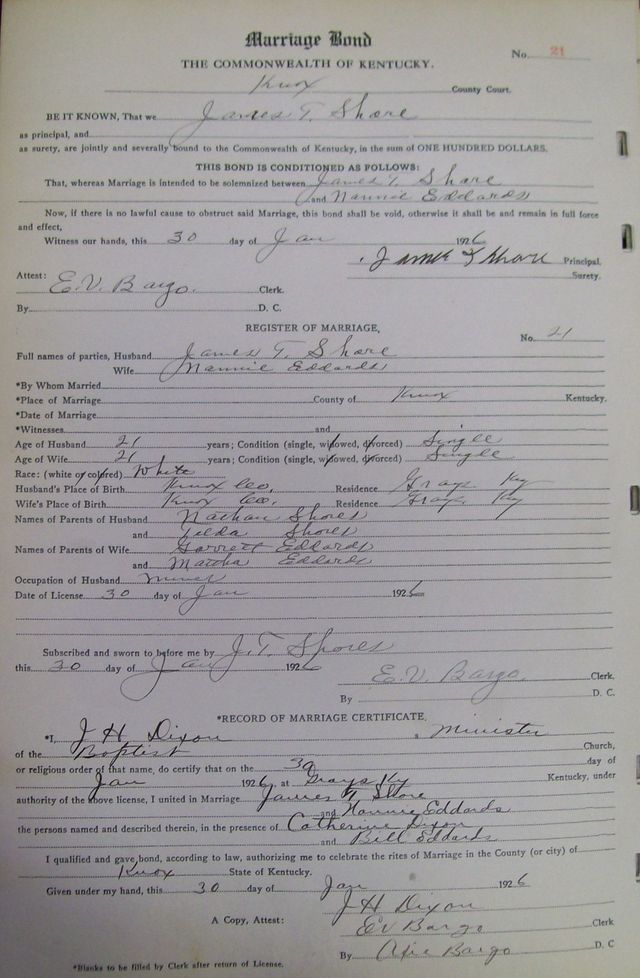 Marriage Bond
No. 21
THE COMMONWEALTH OF KENTUCKY.
Knox County Court.
BE IT KNOWN, That we James T. Shore
as principal, and
as surety, are jointly and severally bound to the Commonwealth of Kentucky, in the sum of ONE HUNDRED DOLLARS.
THIS BOND IS CONDITIONED AS FOLLOWS:
That, whereas Marriage is intended to be solemnized between James T. Shore
and Nannie Eddards
Now, if there is no lawful cause to obstruct said Marriage, this bond shall be void, otherwise it shall be and remain in full force
and effect,
Witness our hands, this 30 day of Jan 1926
James T Shore Principal,
Surety.
Attest:
E.V. Bargo. Clerk.
By D. C.
REGISTER OF MARRIAGE,
No. 21
Full names of parties, Husband James T. Shore
Wife Nannie Eddards
*By Whom Married
*Place of Marriage County of Knox Kentucky.
*Date of Marriage
*Witnesses and
Age of Husband 21 years; Condition (single, widowed, divorced) Single
Age of Wife 21 years; Condition (single, widowed, divorced) Single
Race: (white or colored) White
Husband's Place of Birth Knox Co. Residence Grays Ky
Wife's Place of Birth Knox Co. Residence Grays Ky
Names of Parents of Husband Nathan Shores
and Tilda Shores
Names of Parents of Wife Garrett Eddards
and Martha Eddards
Occupation of Husband miner
Date of License 30 day of Jan 1926
Subscribed and sworn to before me by J.T. Shores
this 30 day of Jan 1926
E.V. Bargo Clerk.
By D. C.
*RECORD OF MARRIAGE CERTIFICATE,
*I, J H Dixon a Minister
of the Baptist Church,
or religious order of that name, do certify that on the 30 day of
Jan 1926, at Grays Ky Kentucky, under
authority of the above license, I united in Marriage James T Shore
and Nannie Eddards
the persons named and described therein, in the presence of Catherine Dixon
and Bill Eddards
I qualified and gave bond, according to law, authorizing me to celebrate the rites of Marriage in the County (or city) of
Knox State of Kentucky.
Given under my hand, this 30 day of Jan 1926
J H Dixon
A Copy, Attest: EV Bargo Clerk
By Bargo D. C
*Blanks to be filled by Clerk after return of License.